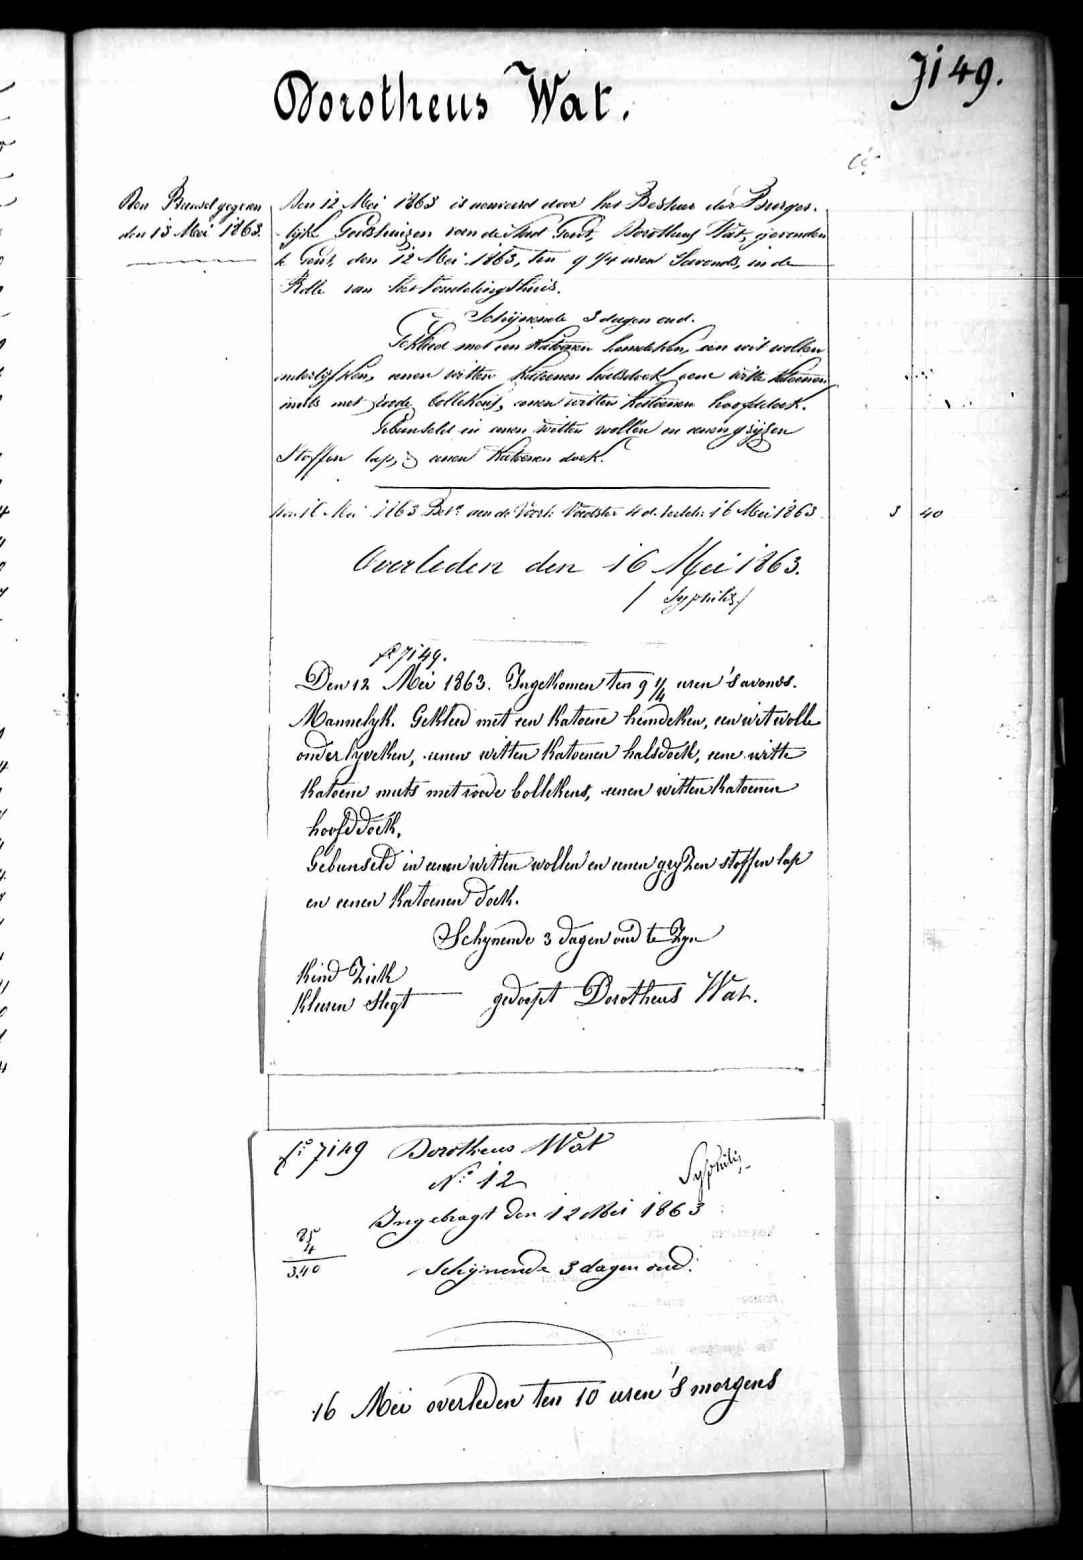 7149.
Dorotheus Wat.
Den Bunsel gegeven
den 13 Mei 1863.
Den 12 Mei 1863 is aenveerd door het Bestuer der Burger-
lijke Godshuizen van de Stad Gent, Dorotheus Wat, gevonden
te Gent, den 12 Mei 1863, ten 9 1/4 uren Savonds, in de
Rolle van het Vondelingshuis.
Schijnende 3 dagen oud.
Gekleed met een Katoenen hemdeken, een wit wollen
onderlijfken, eenen witten Katoenen halsdoek, eene witte Katoenen
muts met roode bollekens, eenen witten Katoenen hoofddoek.
Gebunseld in eenen witten wollen en eenen gryzen
Stoffen lap, & eenen Katoenen doek.
Mei 1863 aen de Voorz. Voedster 4 d. 16 Mei 1863. 3 40
Overleden den 16 Mei 1863.
/ Syphilis /
fo 7149.
Den 12 Mei 1863. Ingekomen ten 9 1/4 uren 's avonds.
Mannelyk. Gekleed met een Katoene hemdeken, een wit wolle
onderlyveken, eenen witten Katoenen halsdoek, eene witte
Katoene muts met roode bollekens, eenen witten Katoenen
hoofddoek.
Gebunseld in eenen witten wollen en eenen gryzen stoffen lap
en eenen Katoenen doek.
Schynende 3 dagen oud te Zyn
Kind Ziek
Kleeren Slegt gedoopt Dorotheus Wat.
fo 7149 Dorotheus Wat
No 12
Syphilis
Ingebragt den 12 Mei 1863
85
4
3.40
Schijnende 3 dagen oud.
16 Mei overleden ten 10 uren 's morgens